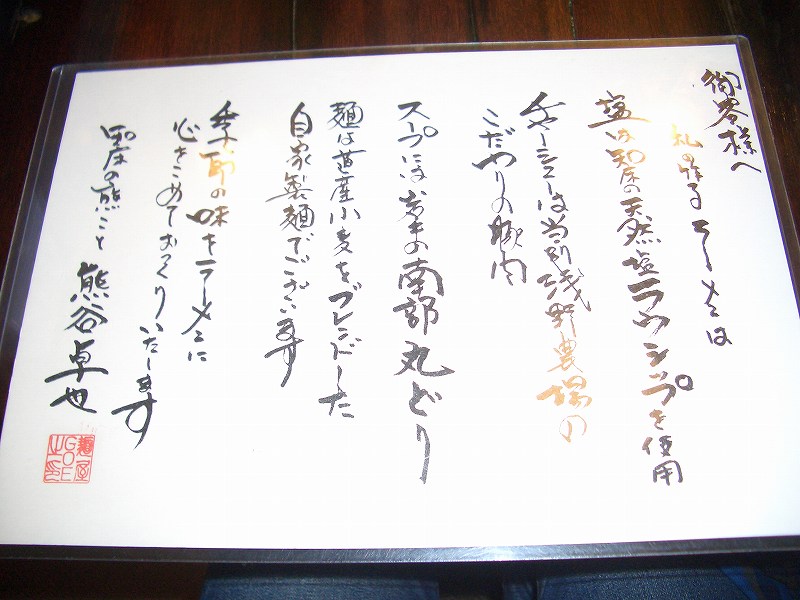 御客様へ
私の作るラーメンは
塩は知床の天然塩ラウシップを使用
チャーシューは当別浅野農場の
こだわりの豚肉
スープには岩手の南部丸どり
麺は道産小麦をブレンドした
自家製麺でございます
季節の味をラーメンに
心をこめておくりいたします
知床の熊こと 熊谷卓也
麺屋GOE之印